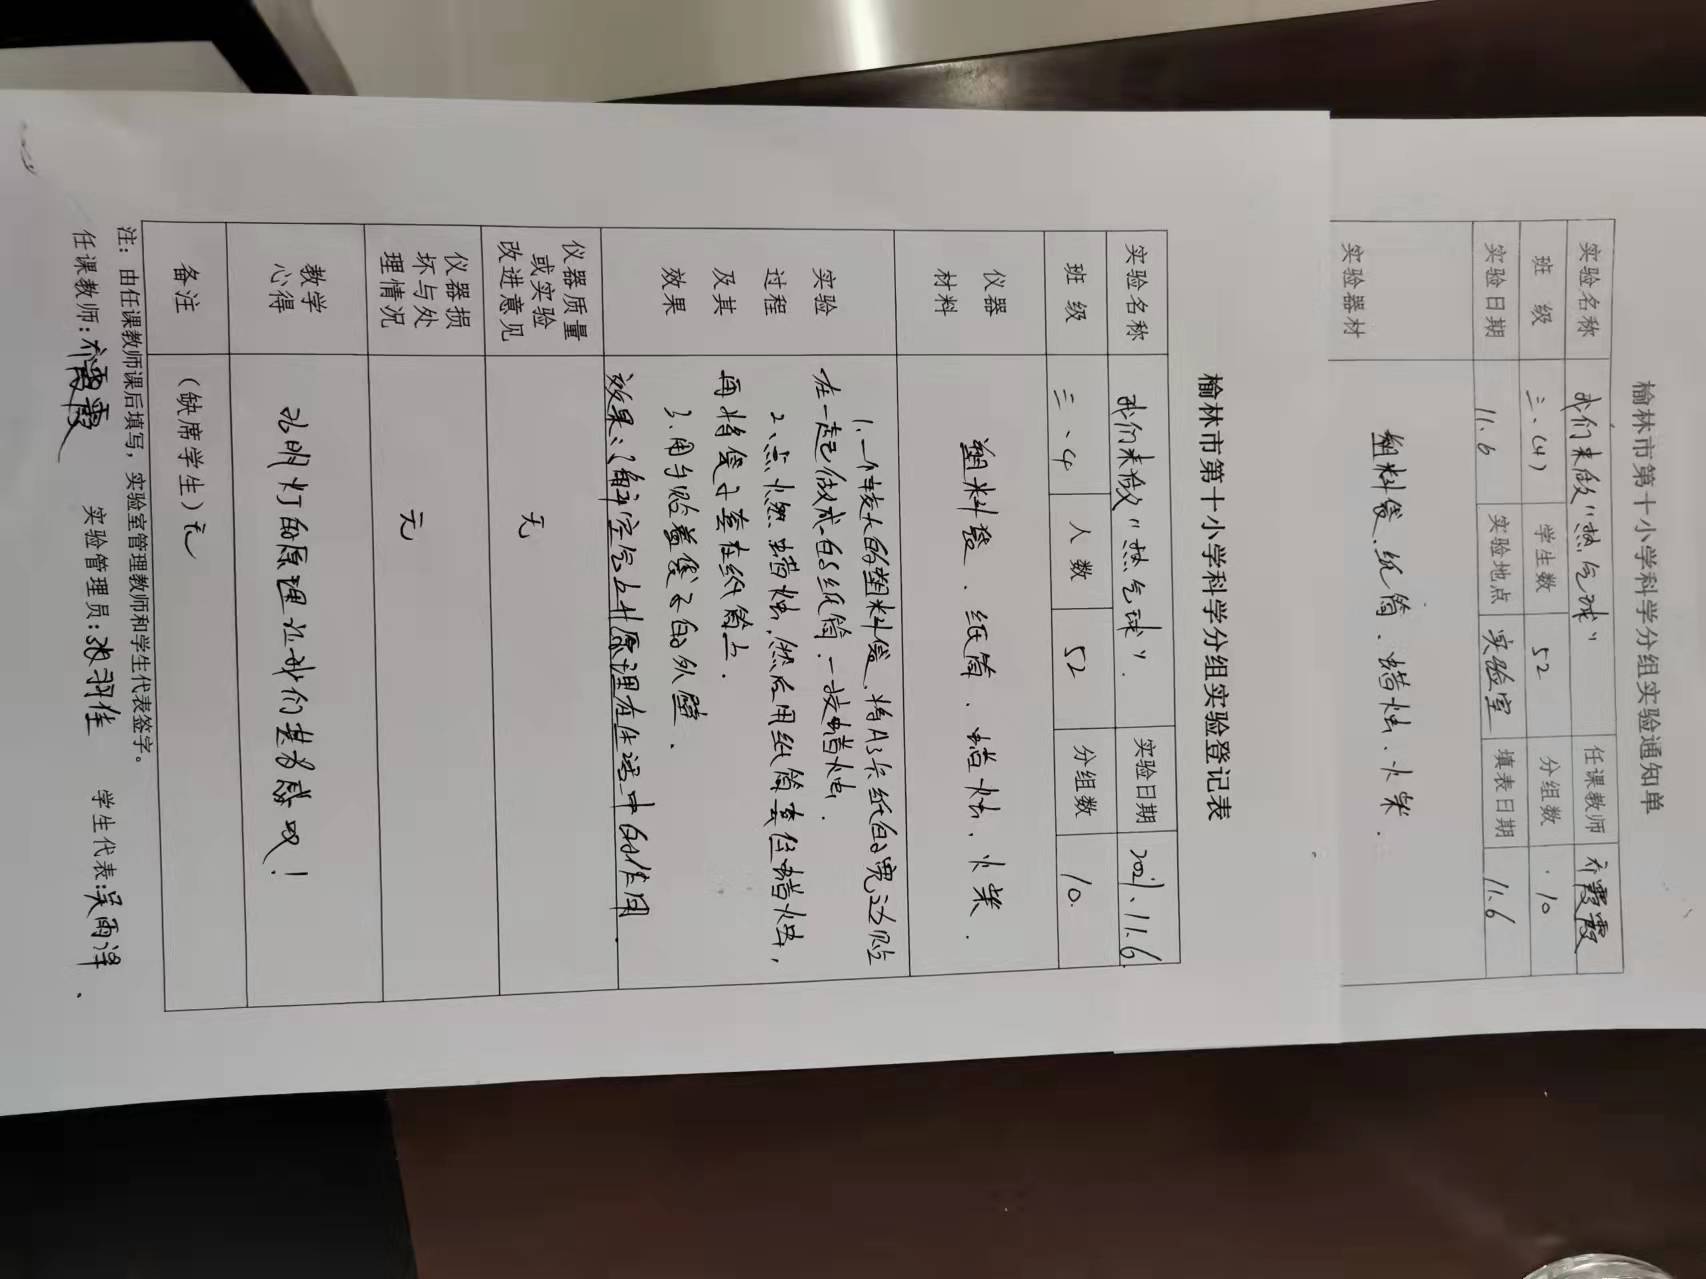 榆林市第十小学科学分组实验通知单
实验名称 我们来做“热气球” 任课教师 乔霞霞
班 级 三.(4) 学生数 52 分组数 10
实验日期 11.6 实验地点 实验室 填表日期 11.6
实验器材 塑料袋、纸筒、蜡烛、火柴.
榆林市第十小学科学分组实验登记表
实验名称 我们来做“热气球”. 实验日期 2021.11.6.
班 级 三、4 人数 52 分组数 10.
仪器
材料
塑料袋、纸筒、蜡烛、火柴.
实验
过程
及其
效果
1.一个较大的塑料袋,将A3卡纸的宽边贴
在一起做成的纸筒.一支蜡烛.
2、点燃蜡烛,然后用纸筒套住蜡烛,
再将袋子套在纸筒上.
3.用手贴着袋子的外壁.
效果:了解了空气上升原理在生活中的作用.
仪器质量
或实验
改进意见
无
仪器损
坏与处
理情况
无
教学
心得
孔明灯的原理让我们甚为感叹!
备注 (缺席学生)无
注:由任课教师课后填写,实验室管理教师和学生代表签字。
任课教师:乔霞霞 实验管理员:羽佳 学生代表:吴雨泽.